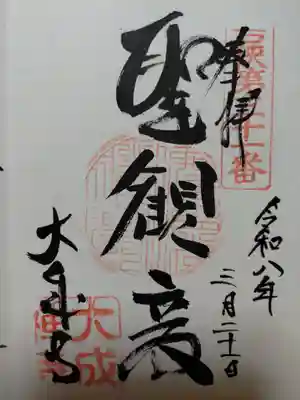 奉拝
聖観音
令和八年
三月二十一日
大成寺
大成